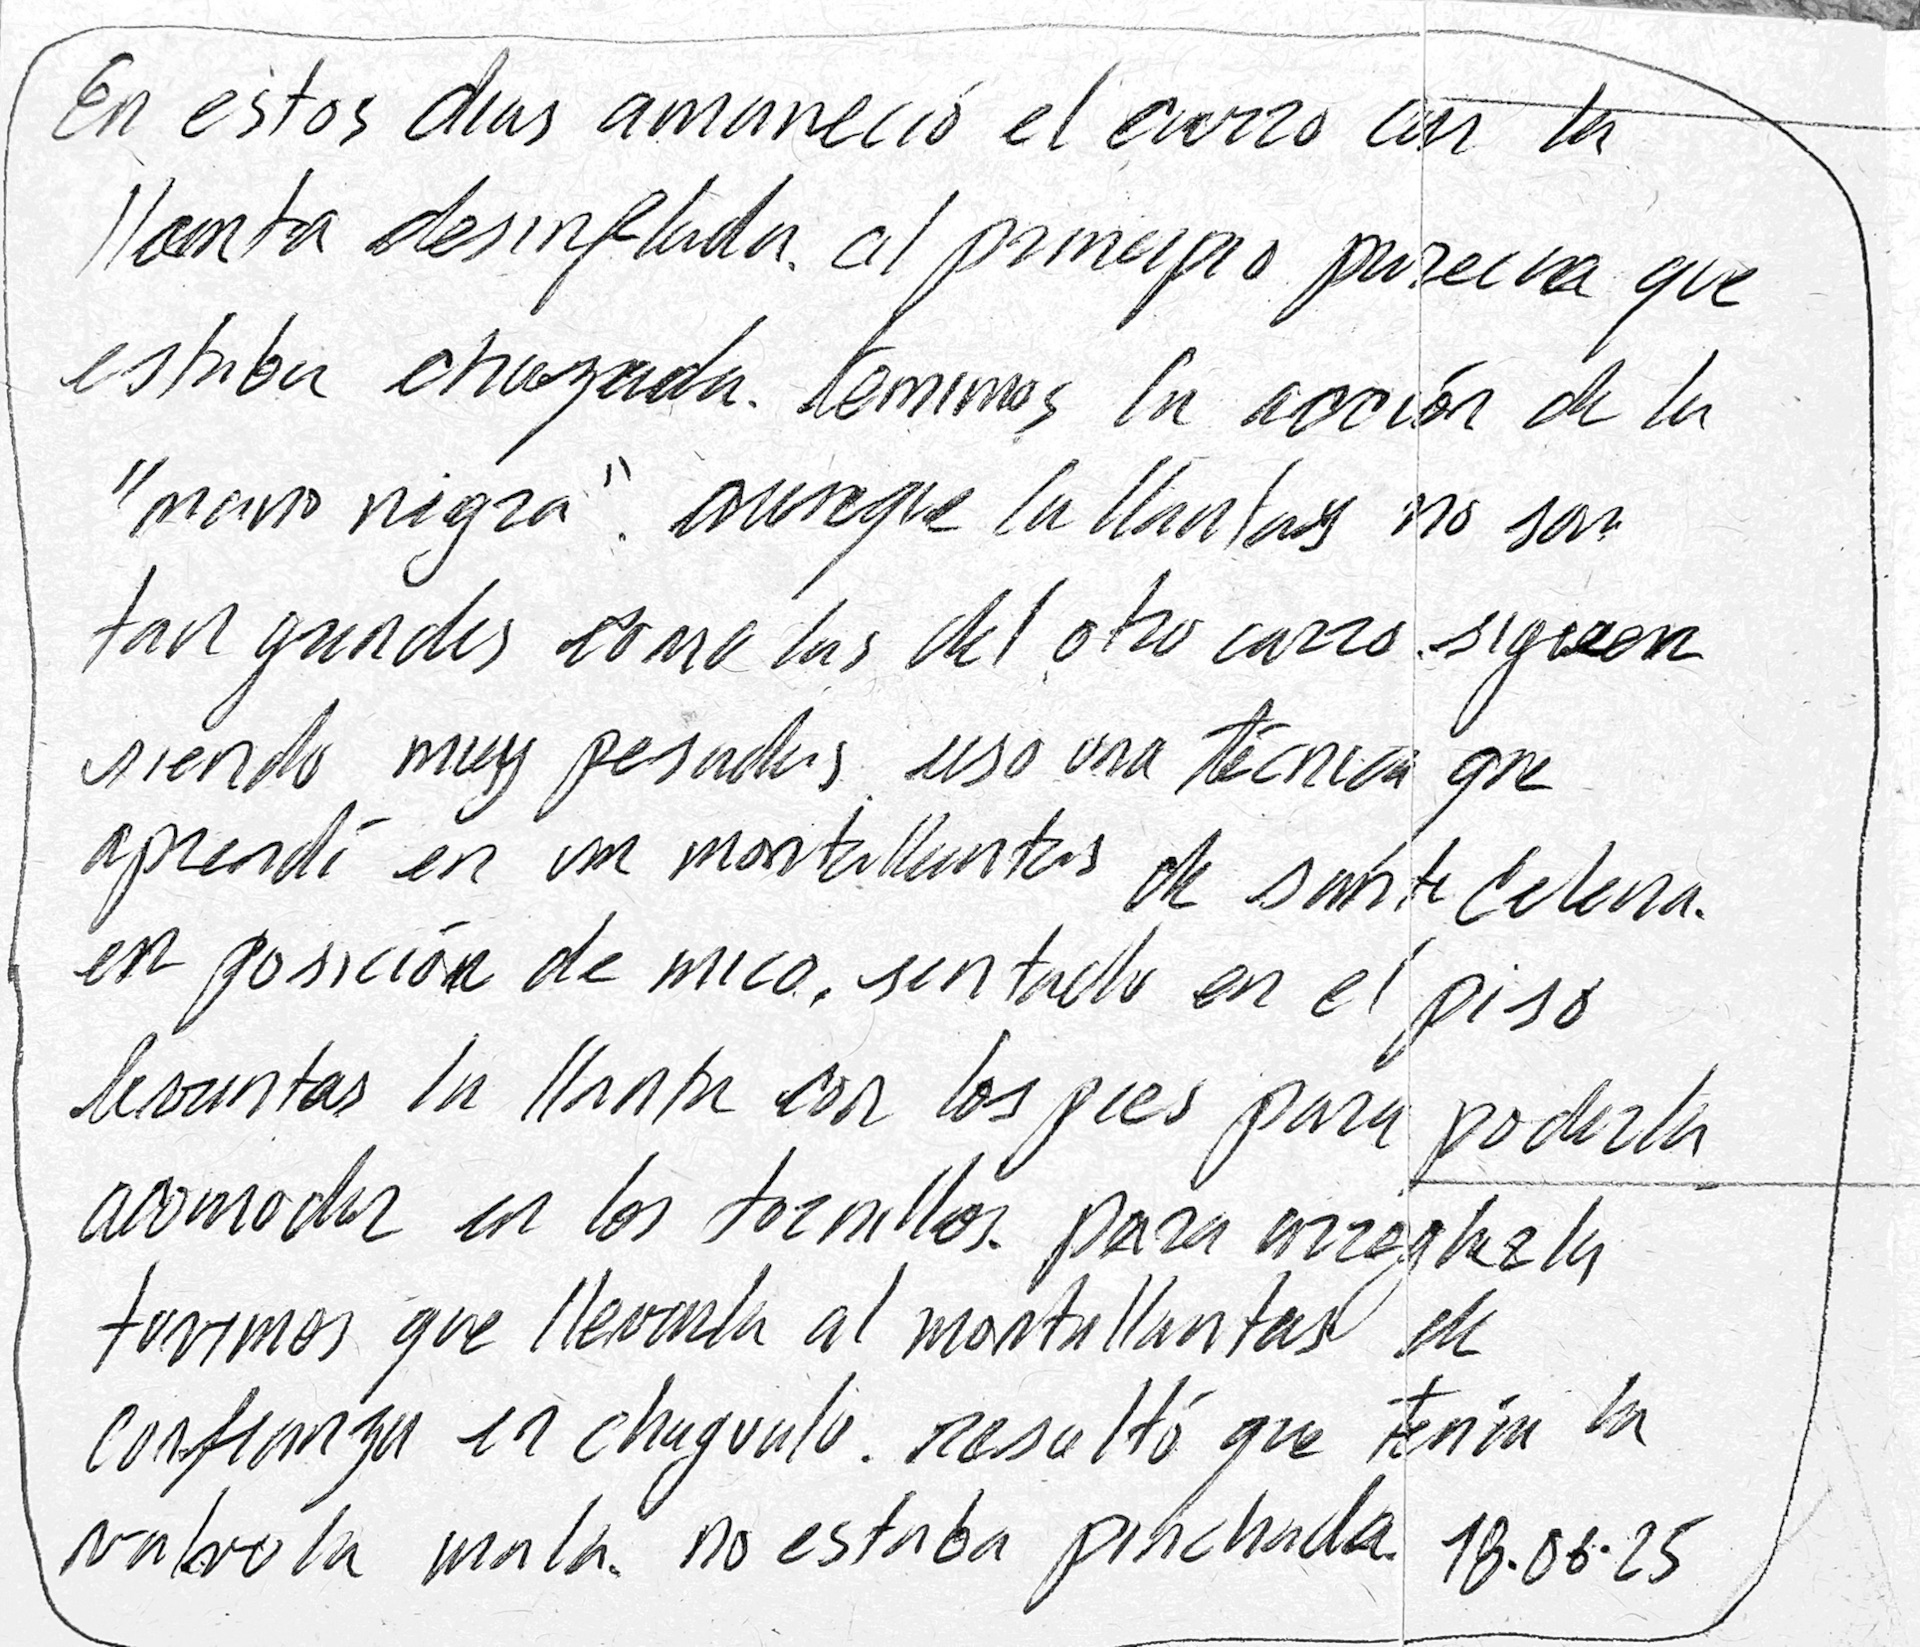 En estos dias amaneció el carro con la
llanta desinflada. al principio parecia que
estaba chuzada. temimos la acción de la
"mano nigra". aunque la llantas no son
tan grandes como las del otro carro. siguen
siendo muy pesadas. uso una técnica que
aprendí en un montallantas de santa Elena.
en posición de mico. sentado en el piso
levantas la llanta con los pies para poderla
acomodar en los tornillos. para arreglarla
tuvimos que llevarla al montallantas de
confianza en chagualo. resultó que tenia la
valvula mala. no estaba pinchada. 18.06.25